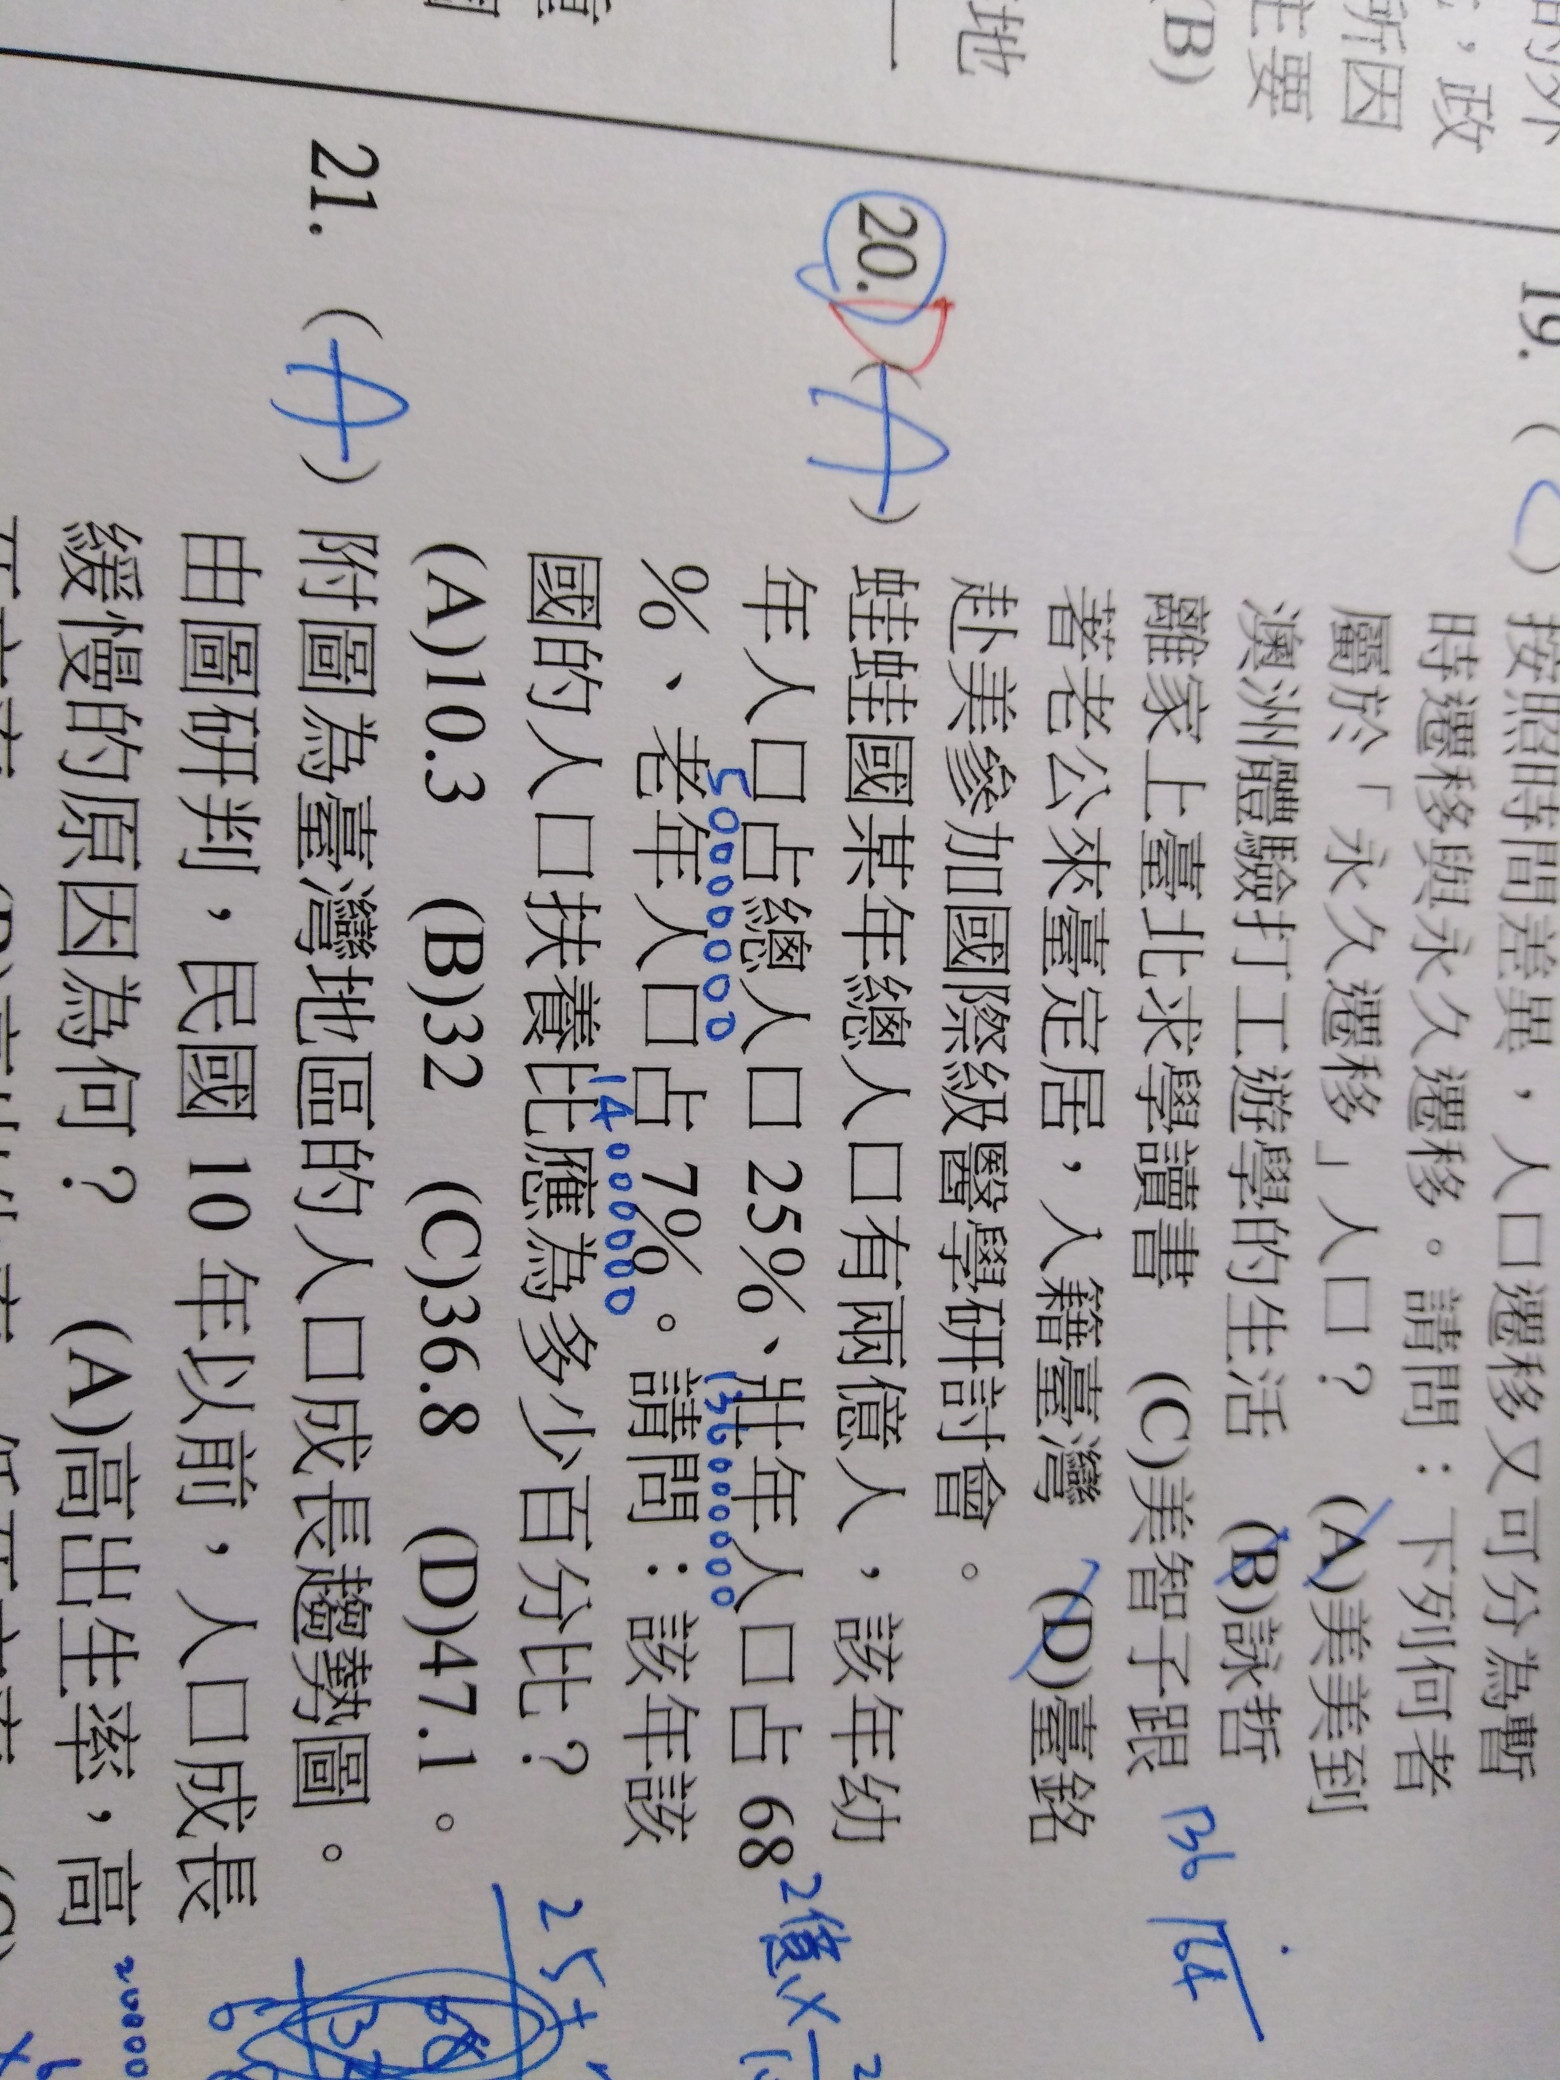 的外
，政
所因
主要
(B)
地
19. ( C ) 按照時間差異，人口遷移又可分為暫
時遷移與永久遷移。請問：下列何者
屬於「永久遷移」人口？ (A)美美到
澳洲體驗打工遊學的生活 (B)詠哲
離家上臺北求學讀書 (C)美智子跟
著老公來臺定居，入籍臺灣 (D)臺銘
赴美參加國際級醫學研討會。
136 64
20. (A) 蛙蛙國某年總人口有兩億人，該年幼
年人口占總人口 25%、壯年人口占 68
50000000 136000000
2億×
%、老年人口占 7%。請問：該年該
14000000
國的人口扶養比應為多少百分比？
25+
(A)10.3 (B)32 (C)36.8 (D)47.1。
68
21. (A) 附圖為臺灣地區的人口成長趨勢圖。
由圖研判，民國 10 年以前，人口成長
緩慢的原因為何？ (A)高出生率，高